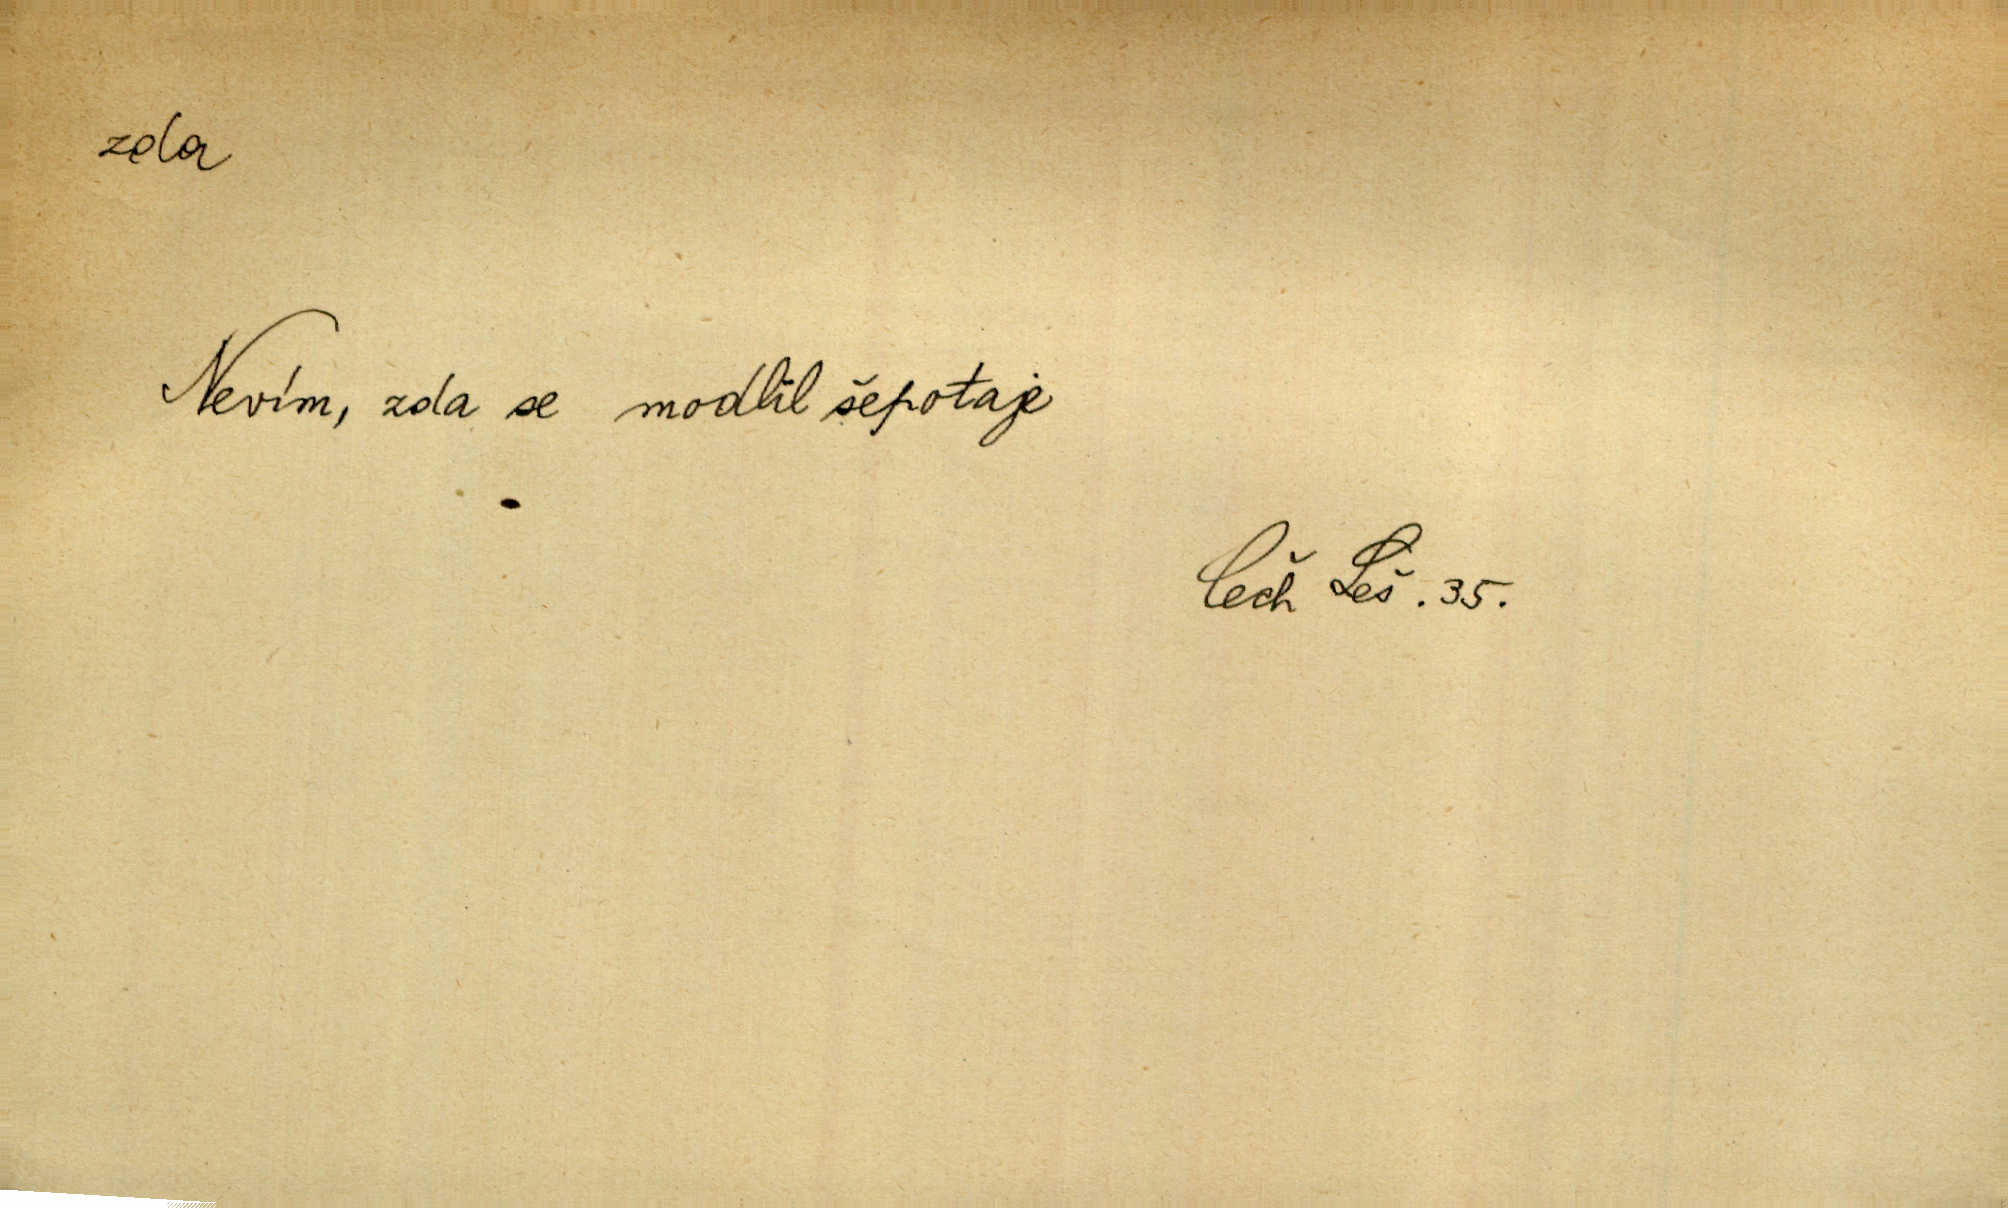 zda
Nevím, zda se modlil šepotaje
Čech Leš. 35.